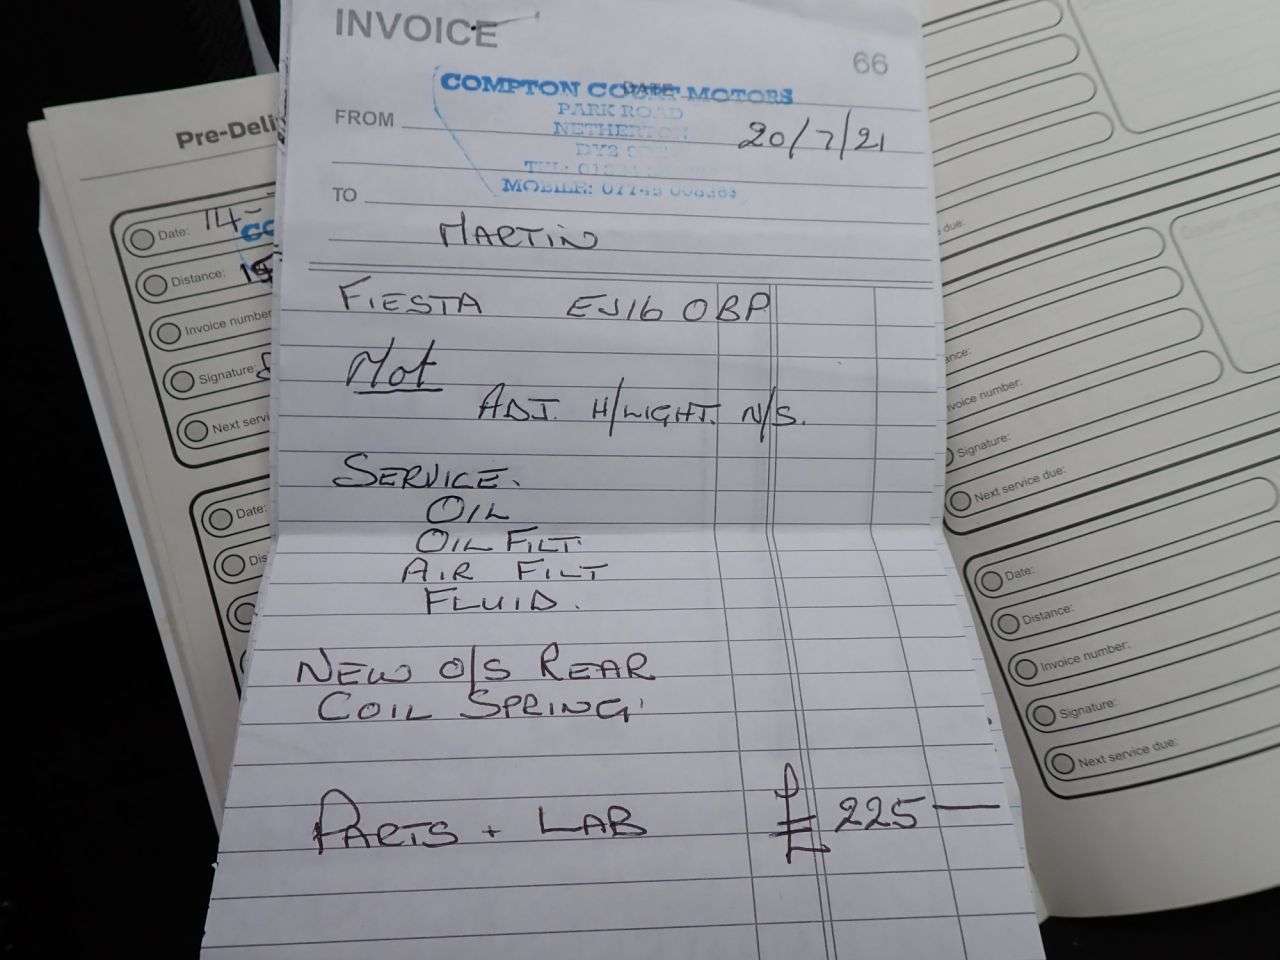 INVOICE
66
COMPTON COURT MOTORS
DATE
PARK ROAD
NETHERTON
DY2
FROM
20/7/21
TEL:
MOBILE:
TO
MARTIN
FIESTA EJ16 OBP
Mot
ADJ. H/LIGHT. N/S.
SERVICE.
OIL
OIL FILT.
AIR FILT
FLUID.
NEW O/S REAR
COIL SPRING
PARTS + LAB £ 225 —
Pre-Deli
Date: 14-
Distance:
Invoice number
Signature:
Next servi
Date:
Dis
due:
ance:
nvoice number:
Signature:
Next service due:
Date:
Distance:
Invoice number:
Signature:
Next service due: